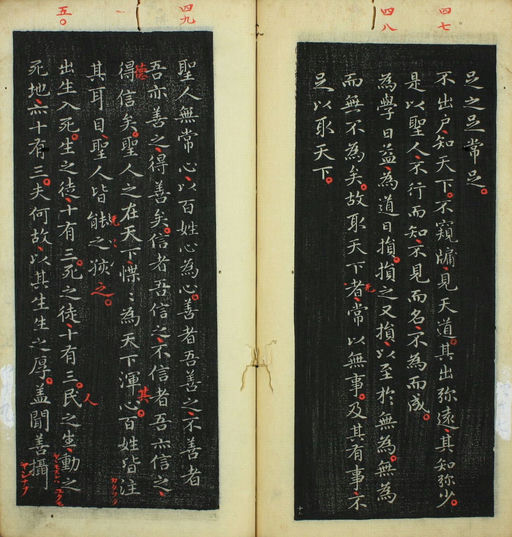 四七
四八
足之足常足
不出戶知天下不窺牖見天道其出弥遠其知弥少
是以聖人不行而知不見而名不為而成
為學日益為道日損損之又損以至於無為無為
而無不為矣故取天下者常以無事及其有事不
足以取天下
四九
五〇
聖人無常心以百姓心為心善者吾善之不善者
吾亦善之得善矣信者吾信之不信者吾亦信之
得信矣聖人之在天下惵〻為天下渾心百姓皆注
其耳目聖人皆㑷之
出生入死生之徒十有三死之徒十有三民之生動之
死地亦十有三夫何故以其生生之厚盖聞善攝
德
其
人